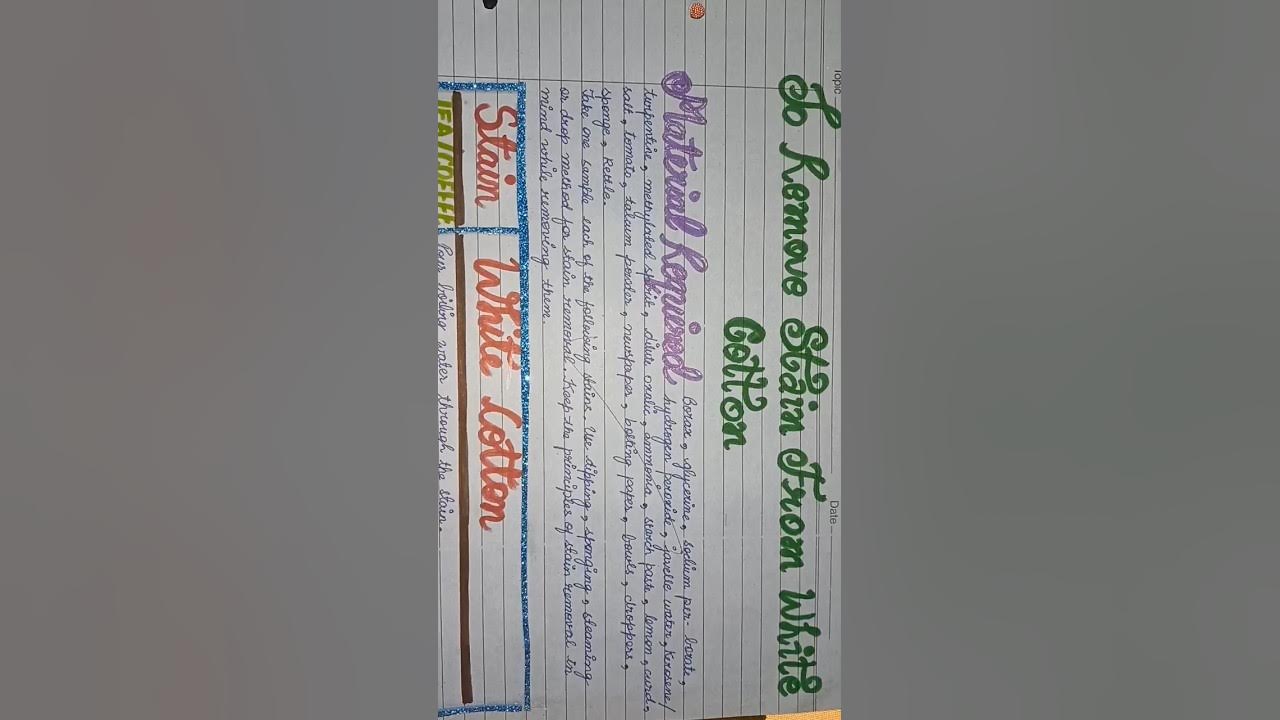 Topic
Date
To Remove Stain From White
Cotton
Material Requierd Borax, glycerine, sodium per-borate,
hydrogen peroxide, javelle water, kerosene/
turpentine, methylated spirit, dilute oxalic, ammonia, starch paste, lemon, curd,
salt, tomato, talcum powder, newspaper, bolting paper, bowls, droppers,
sponge, Kettle.
Take one sample each of the following stains. Use dipping, sponging, steaming
or drop method for stain removal. Keep the principles of stain removal in
mind while removing them.
Stain White Cotton
TEA/COFFEE Pour boiling water through the stain.